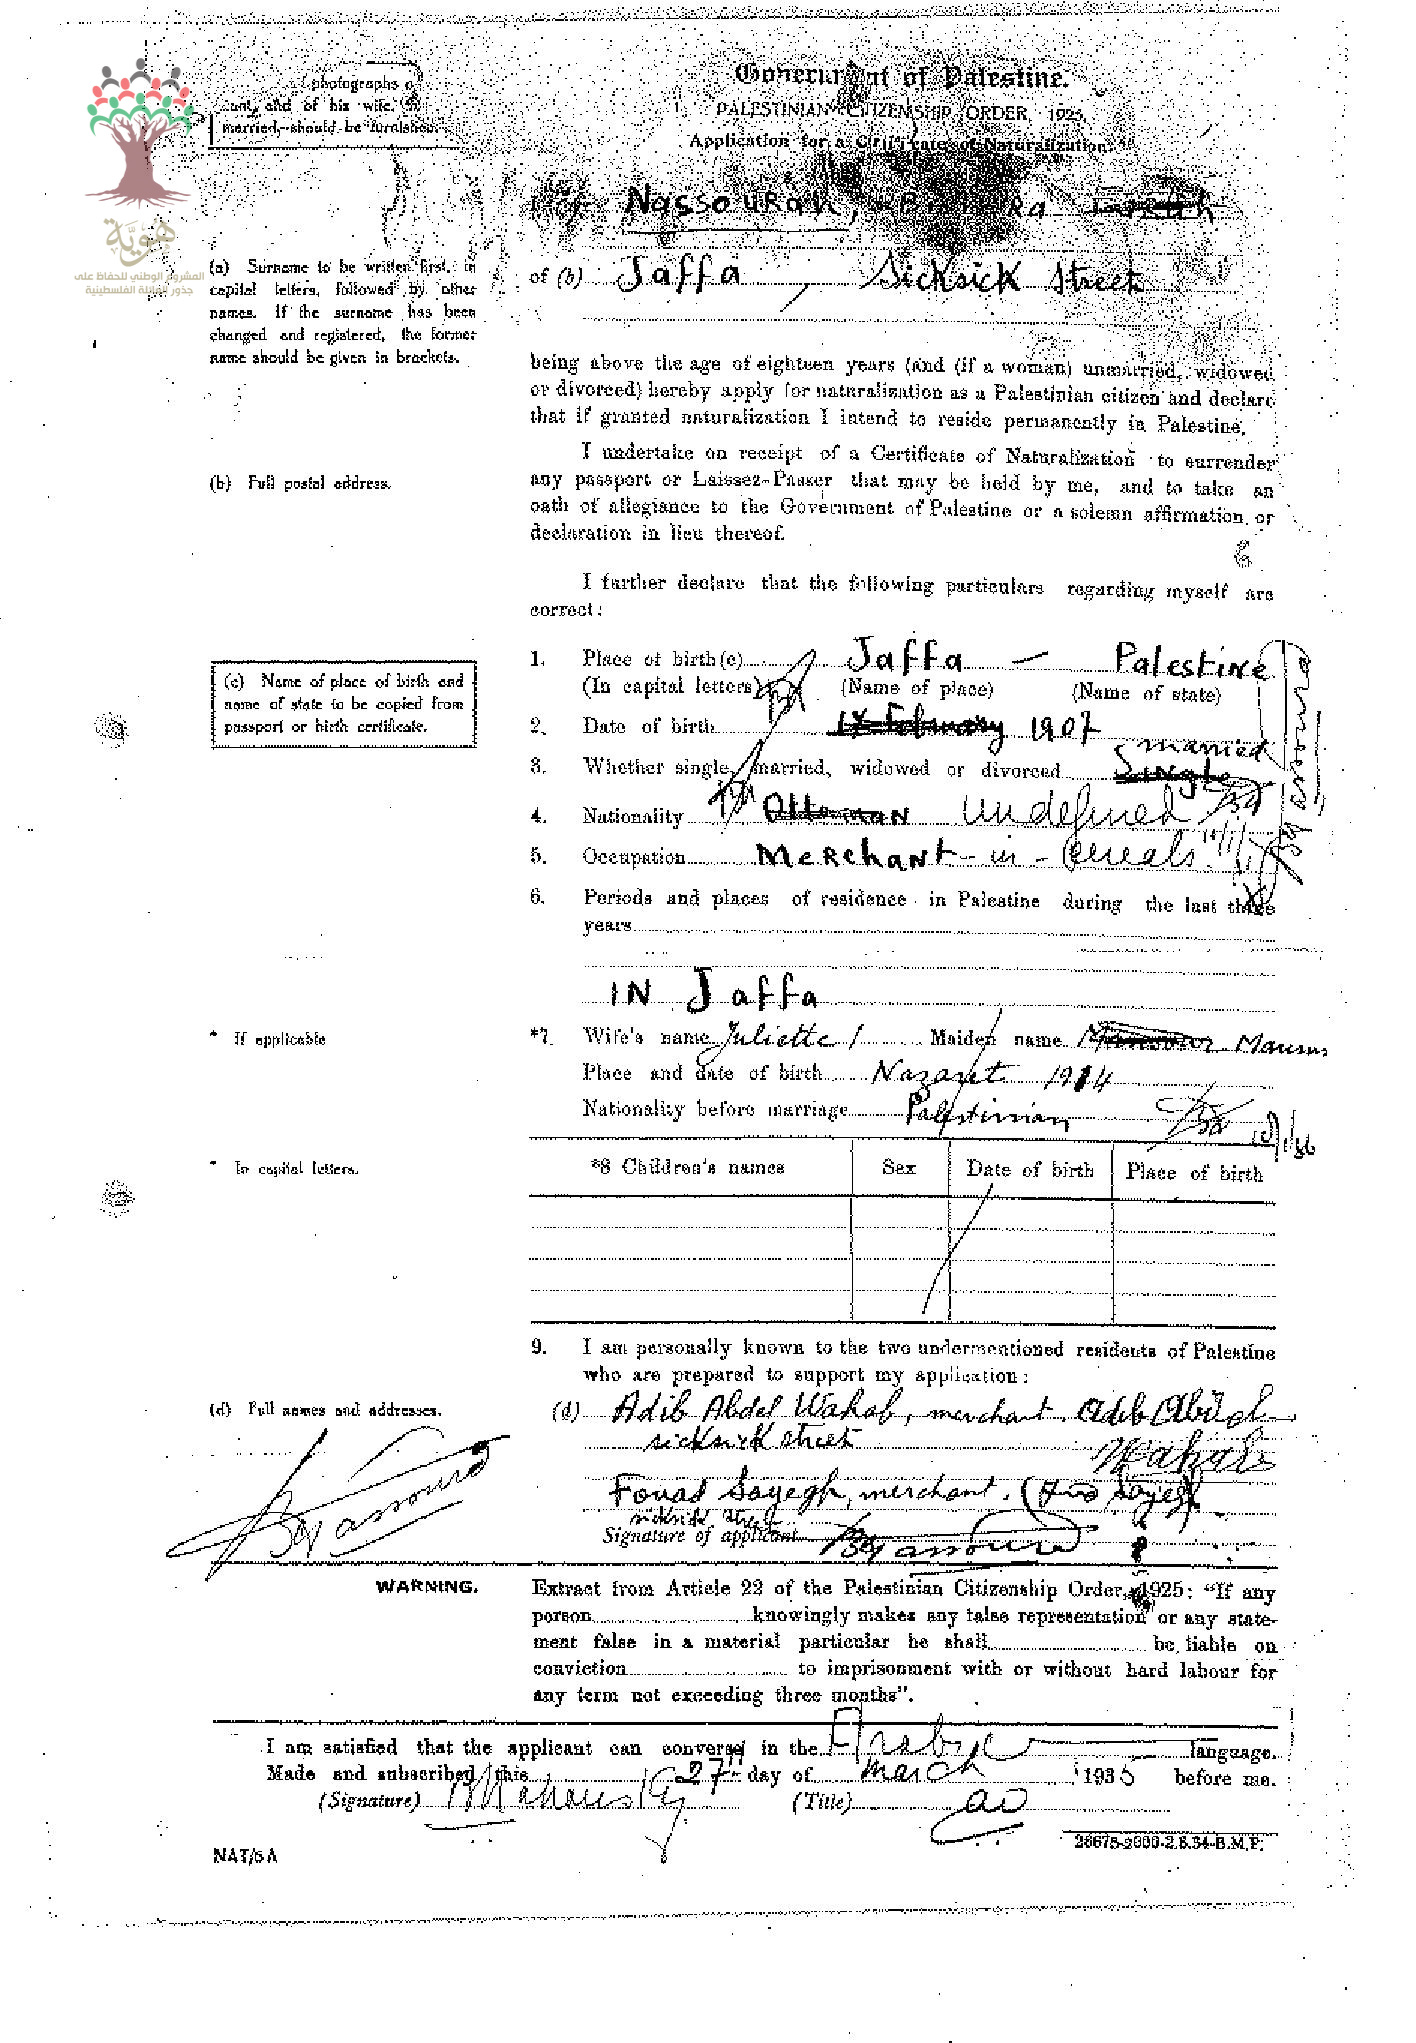 photographs
and of his wife,
married, should be furnished
Government of Palestine.
PALESTINIAN CITIZENSHIP ORDER, 1925.
Application for a Certificate of Naturalization
هويّة
المشروع الوطني للحفاظ على
جذور العائلة الفلسطينية
(a) Surname to be written first, in
capital letters, followed by other
names. If the surname has been
changed and registered, the former
name should be given in brackets.
of (b) Jaffa, Sicksick Street
being above the age of eighteen years (and (if a woman) unmarried, widowed
or divorced) hereby apply for naturalization as a Palestinian citizen and declare
that if granted naturalization I intend to reside permanently in Palestine.
(b) Full postal address.
I undertake on receipt of a Certificate of Naturalization to surrender
any passport or Laissez-Passer that may be held by me, and to take an
oath of allegiance to the Government of Palestine or a solemn affirmation or
declaration in lieu thereof.
I further declare that the following particulars regarding myself are
correct:
(c) Name of place of birth and
name of state to be copied from
passport or birth certificate.
1. Place of birth (c) Jaffa — Palestine
(In capital letters) (Name of place) (Name of state)
2. Date of birth 17 February 1907
married
3. Whether single, married, widowed or divorced Single
4. Nationality Ottoman Undefined
5. Occupation Merchant - in - Cereals
6. Periods and places of residence in Palestine during the last three
years
IN Jaffa
* If applicable
*7. Wife's name Juliette Maiden name
Place and date of birth Nazaret 1914
Nationality before marriage Palestinian
* In capital letters.
*8 Children's names Sex Date of birth Place of birth
9. I am personally known to the two undermentioned residents of Palestine
who are prepared to support my application:
(d) Full names and addresses.
(d) Adib Abdel Wahab, merchant, Adib Abdel
sicksick street Wahab
Fouad Sayegh, merchant.
sicksick street
Signature of applicant
WARNING.
Extract from Article 22 of the Palestinian Citizenship Order, 1925: "If any
person knowingly makes any false representation or any state-
ment false in a material particular he shall be liable on
conviction to imprisonment with or without hard labour for
any term not exceeding three months".
I am satisfied that the applicant can converse in the Arabic language.
Made and subscribed this 27th day of March 1935 before me.
(Signature) (Title) ao
NAT/5A
26675-2000-2.8.34-B.M.P.